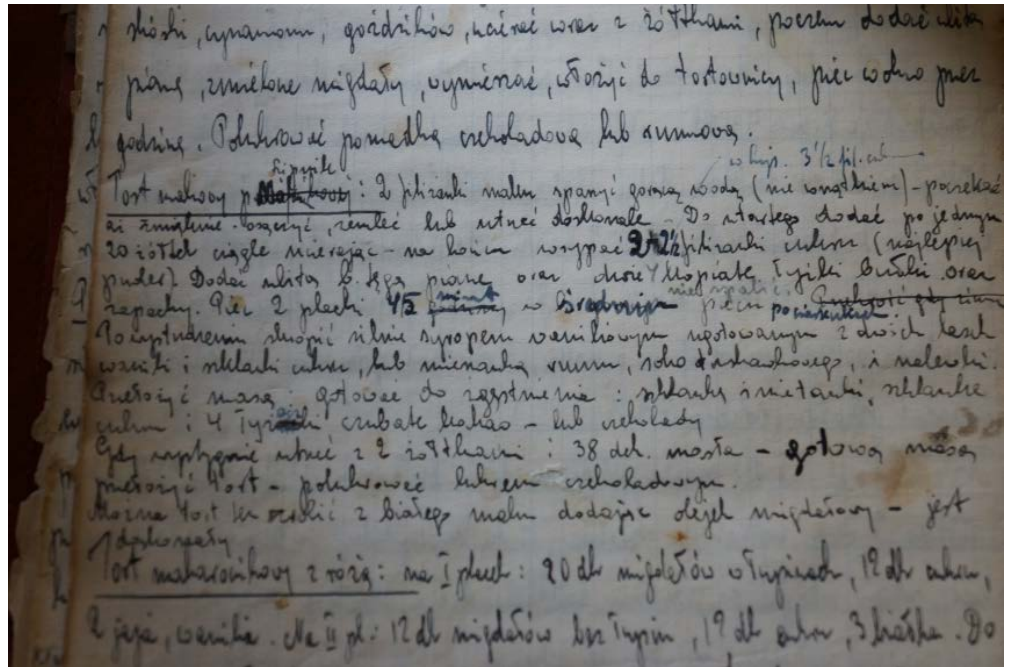 skórki, cynamonu, goździków, ucierać wraz z żółtkami, poczem dodać ubitą
pianę, zmielone migdały, wymieszać, włożyć do tortownicy, piec wolno przez
godzinę. Polukrować pomadką czekoladową lub rumową.
3 1/2 fil. cuk
Tort makowy p. : 2 filiżanki maku sparzyć gorącą wodą (nie wrzątkiem) - poczekać
aż zmięknie. Osączyć, zemleć lub utrzeć doskonale - Do utartego dodać po jednym
20 żółtek ciągle ucierając - na końcu wsypać 2 1/2 filiżanki cukru (najlepiej
puder). Dodać ubitą b. tęgą pianę oraz dwie kopiate łyżki bułki oraz
nie spalić.
zapachy. Piec 2 placki 45 minut w średnim piecu
Po wystudzeniu skropić silnie syropem waniliowym ugotowanym z dwóch lasek
wanilii i szklanki cukru, lub mieszanką rumu, soku, i nalewki.
Przełożyć masą gotować do zgęstnienia: szklankę śmietanki, szklankę
cukru i 4 łyżki czubate kakao - lub czekolady
Gdy wystygnie utrzeć z 2 żółtkami i 38 dek. masła - gotową masą
przełożyć tort - polukrować lukrem czekoladowym.
Można tort ten zrobić z białego maku dodając olejek migdałowy - jest
doskonały
Tort makaronikowy z różą: na I placek: 20 dk migdałów w łupinach, 12 dk cukru,
2 jaja, wanilia. Na II pl: 12 dk migdałów bez łupin, 12 dk cukru, 3 białka. Do